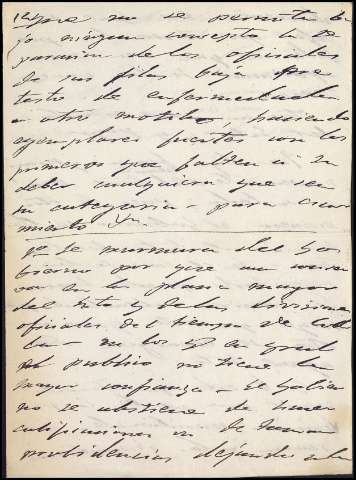 que no se permita ba
jo ningun concepto la se
paracion de los oficiales
de sus filas bajo pre
testo de enfermedades
u otro motivo, haciendo
ejemplares fuertes con los
primeros que falten a su
deber cualquiera que sea
su categoria - para
miento
se murmura del Go
bierno por que
en la plana mayor
del y de las divisiones
oficiales del tiempo de
en los que
el publico no tiene la
mayor confianza - El Gobier
no se abstiene de hacer
calificaciones de
providencias dejando a la